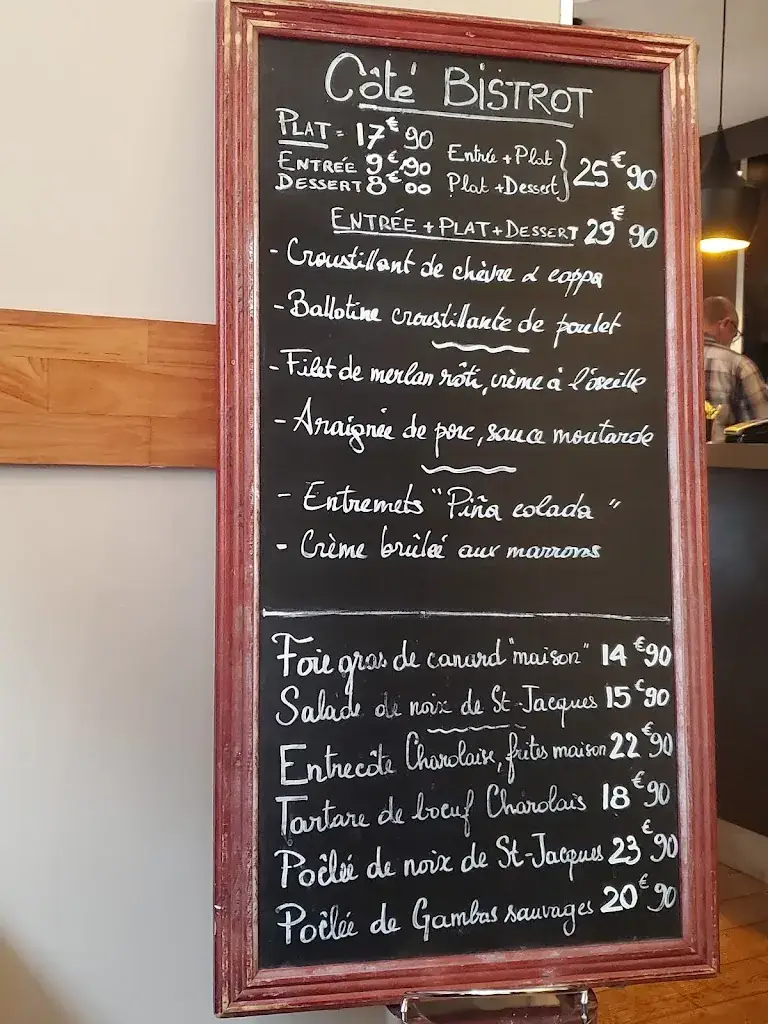 Côté BISTROT
PLAT = 17€90
ENTRÉE 9€90 Entrée + Plat
DESSERT 8€00 Plat + Dessert } 25€90
ENTRÉE + PLAT + DESSERT 29€90
- Croustillant de chèvre & coppa
- Ballotine croustillante de poulet
- Filet de merlan rôti, crème à l'oseille
- Araignée de porc, sauce moutarde
- Entremets "Piña colada"
- Crème brûlée aux marrons
Foie gras de canard "maison" 14€90
Salade de noix de St-Jacques 15€90
Entrecôte Charolaise, frites maison 22€90
Tartare de boeuf Charolais 18€90
Poêlée de noix de St-Jacques 23€90
Poêlée de Gambas sauvages 20€90